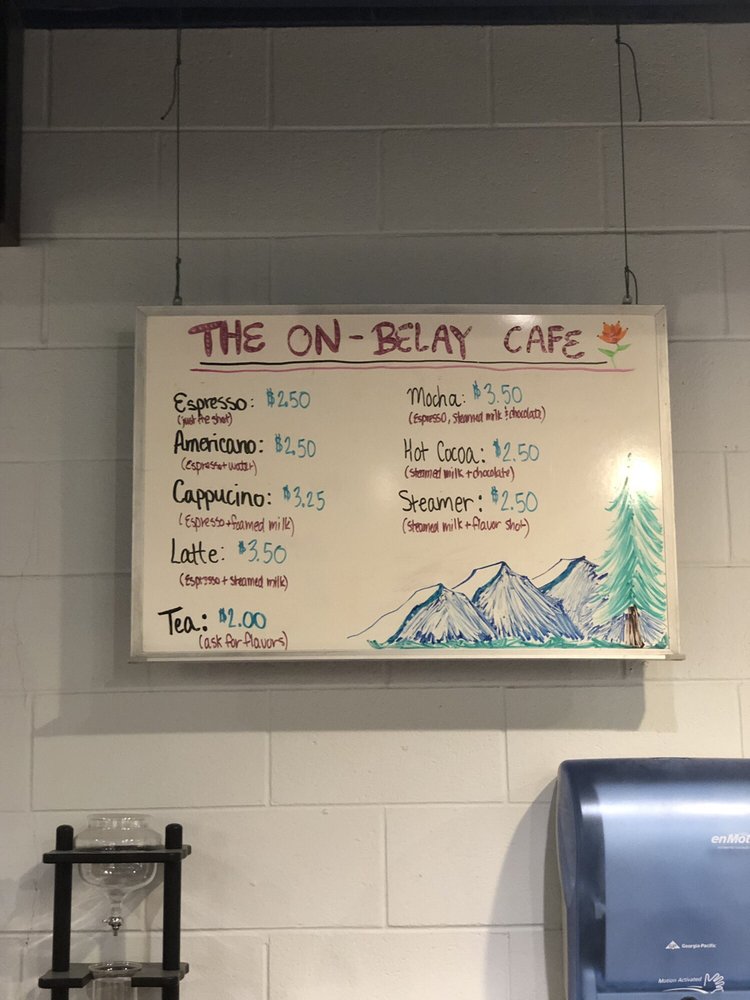 THE ON-BELAY CAFE
Espresso: $2.50
(just the shot)
Americano: $2.50
(Espresso + water)
Cappucino: $3.25
(Espresso + foamed milk)
Latte: $3.50
(Espresso + steamed milk)
Tea: $2.00
(ask for flavors)
Mocha: $3.50
(Espresso, steamed milk & chocolate)
Hot Cocoa: $2.50
(steamed milk + chocolate)
Steamer: $2.50
(steamed milk + flavor shot)
enMot
Georgia-Pacific
Motion Activated